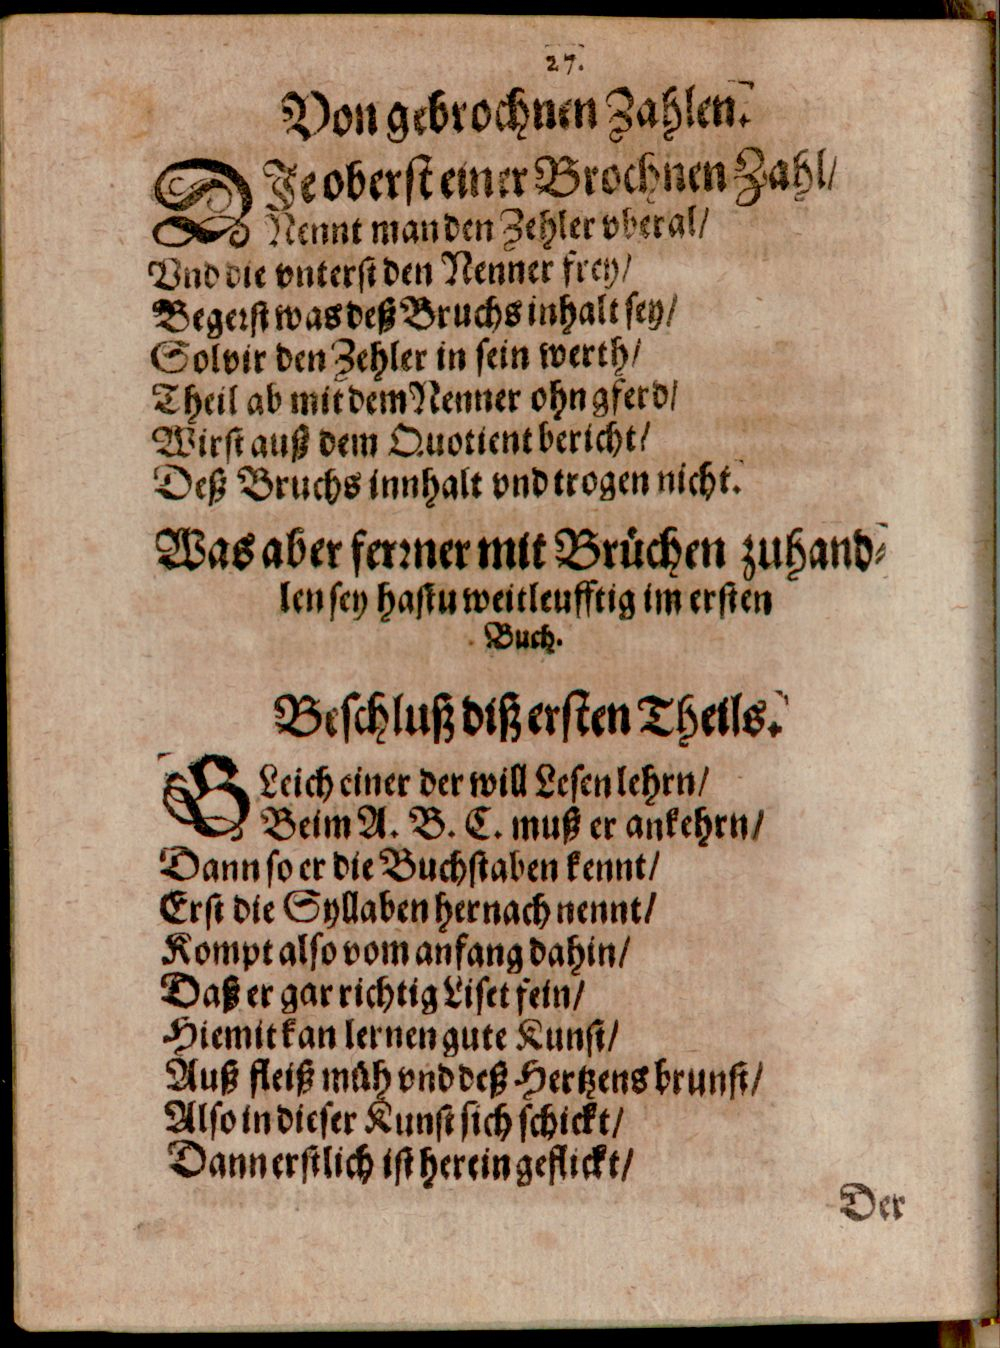 27.
Von gebrochnen Zahlen.
DJe oberst einer Brochnen Zahl/
Nennt man den Zehler vberal/
Vnd die vnterst den Nenner frey/
Begerst was deß Bruchs inhalt sey/
Solvir den Zehler in sein werth/
Theil ab mit dem Nenner ohn gferd/
Wirst auß dem Quotient bericht/
Deß Bruchs innhalt vnd trogen nicht.
Was aber ferrner mit Brüchen zuhand⸗
len sey hastu weitleufftig im ersten
Buch.
Beschluß diß ersten Theils.
GLeich einer der will Lesen lehrn/
Beim A. B. C. muß er ankehrn/
Dann so er die Buchstaben kennt/
Erst die Syllaben hernach nennt/
Kompt also vom anfang dahin/
Daß er gar richtig Liset fein/
Hiemit kan lernen gute Kunst/
Auß fleiß müh vnd deß Hertzens brunst/
Also in dieser Kunst sich schickt/
Dann erstlich ist herein geflickt/
Der